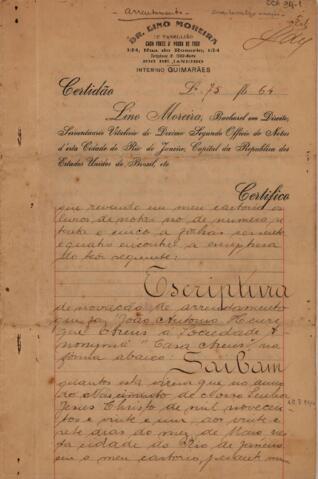 arrendamento
DR. LINO MOREIRA
12º TABELLIÃO
CASA FORTE Á PROVA DE FOGO
134, Rua do Rosario, 134
RIO DE JANEIRO
INTERINO GUIMARÃES
Certidão L. 75 fl. 64
Lino Moreira, Bacharel em Direito,
Serventuario Vitalicio do Decimo Segundo Officio de Notas
d'esta Cidade do Rio de Janeiro, Capital da Republica dos
Estados Unidos do Brasil, etc.
Certifico
que revendo em meu cartorio os
livros de notas no de numero se
tenta e cinco a folhas sessenta
e quatro encontrei a
do teor seguinte:
Escriptura
de novação de arrendamento
que faz João Antonio
que á Sociedade A
nonyma "Casa", na
fórma abaixo:
Saibam
quantos esta virem que no anno
do Nascimento de Nosso Senhor
Jesus Christo de mil novecen
tos e vinte e um, aos vinte e
sete dias do mez de Maio nes
ta cidade do Rio de Janeiro
em o meu cartorio,